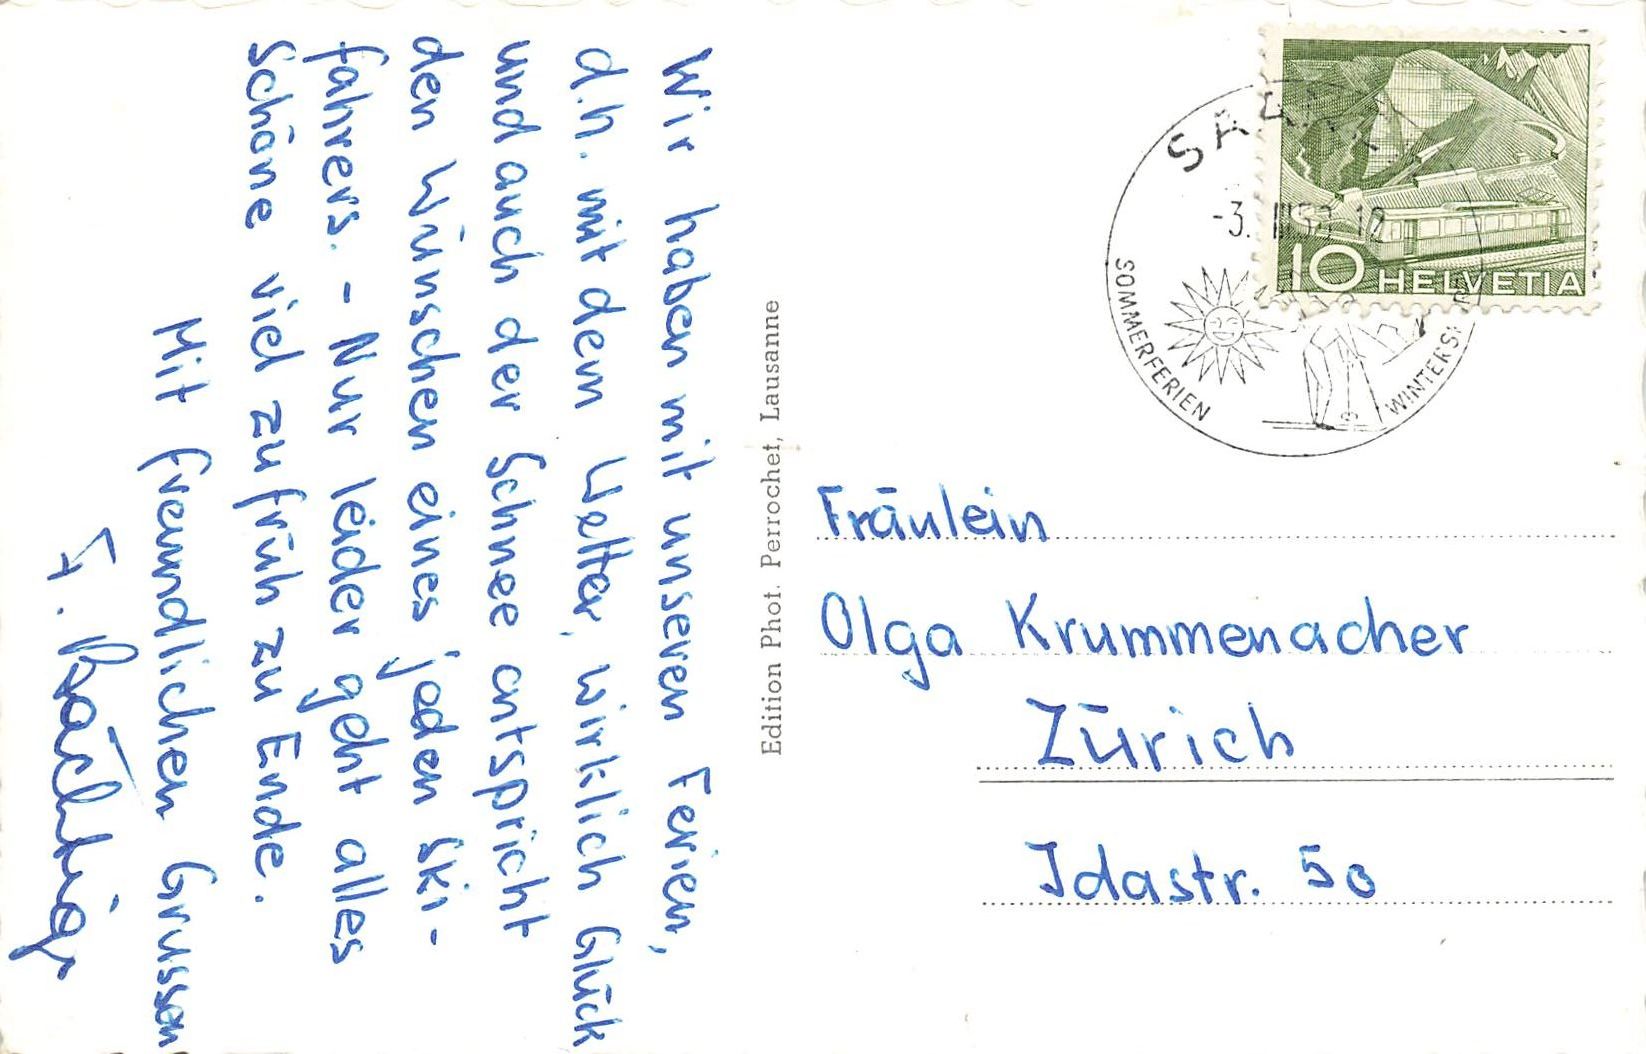 Wir haben mit unseren Ferien,
d.h. mit dem Wetter, wirklich Glück
und auch der Schnee entspricht
den Wünschen eines jeden Ski-
fahrers. - Nur leider geht alles
Schöne viel zu früh zu Ende.
Mit freundlichen Grussen
Edition Phot. Perrochet, Lausanne
-3. III 5
SOMMERFERIEN
10 HELVETIA
Fräulein
Olga Krummenacher
Zürich
Idastr. 50